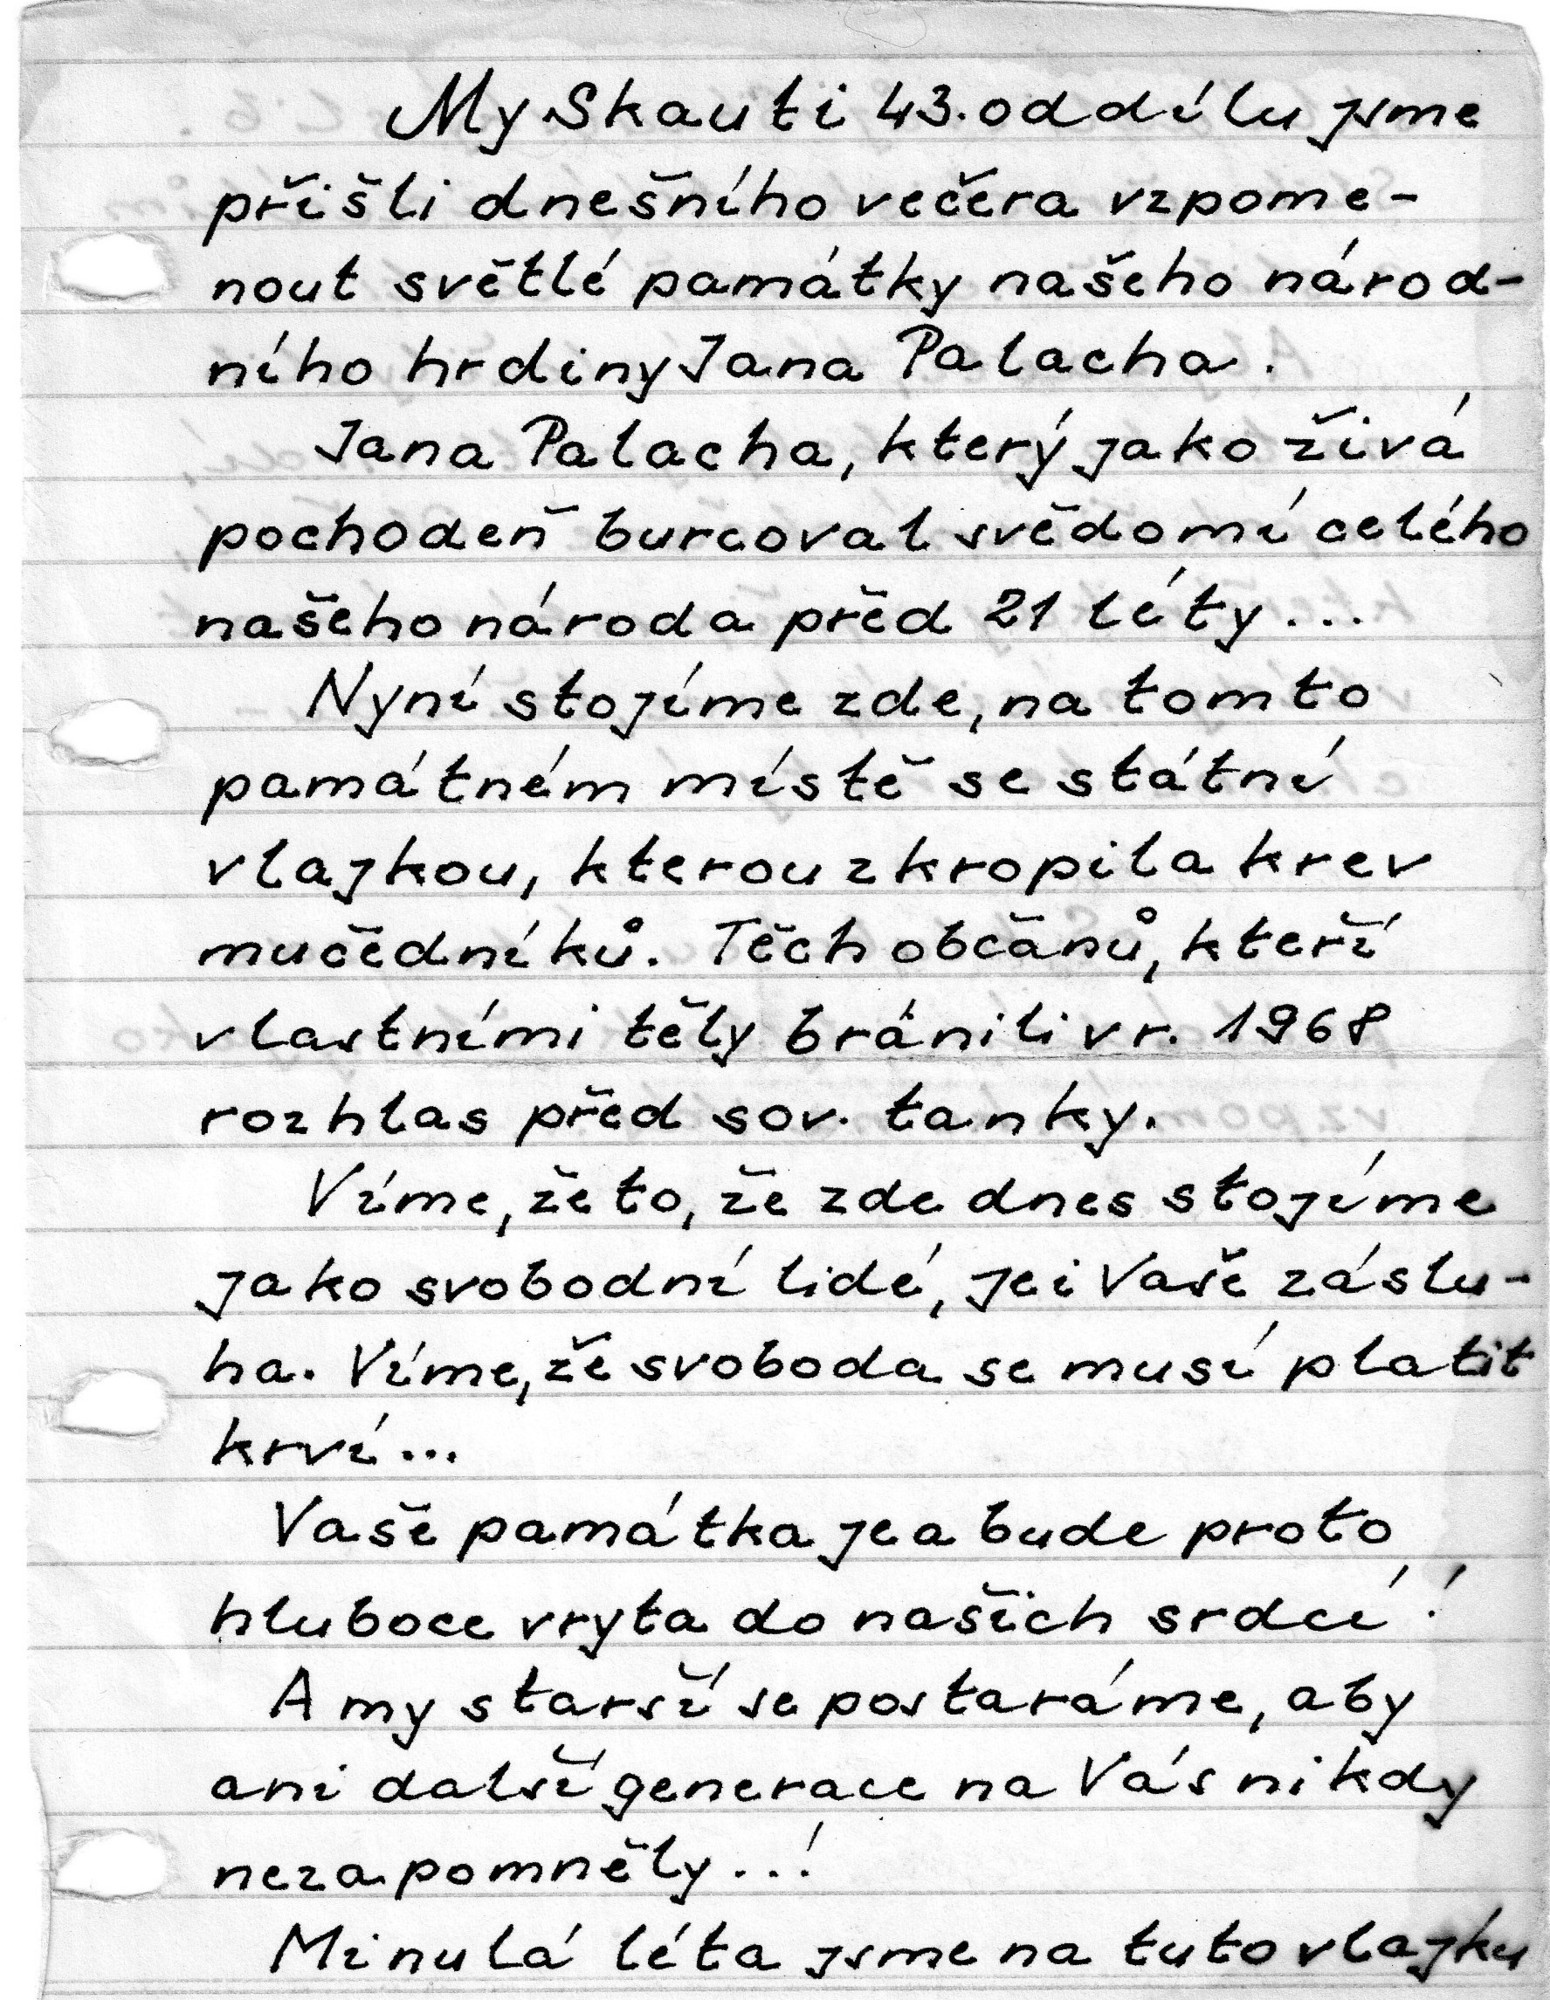 My Skauti 43. oddílu jsme
přišli dnešního večera vzpome-
nout světlé památky našeho národ-
ního hrdiny Jana Palacha.
Jana Palacha, který jako živá
pochodeň burcoval svědomí celého
našeho národa před 21 léty...
Nyní stojíme zde, na tomto
památném místě se státní
vlajkou, kterou zkropila krev
mučedníků. Těch občanů, kteří
vlastními těly bránili v r. 1968
rozhlas před sov. tanky.
Víme, že to, že zde dnes stojíme
jako svobodní lidé, je i Vaše záslu-
ha. Víme, že svoboda se musí platit
krví...
Vaše památka je a bude proto
hluboce vryta do našich srdcí!
A my starší se postaráme, aby
ani další generace na Vás nikdy
nezapomněly...!
Minulá léta jsme na tuto vlajku